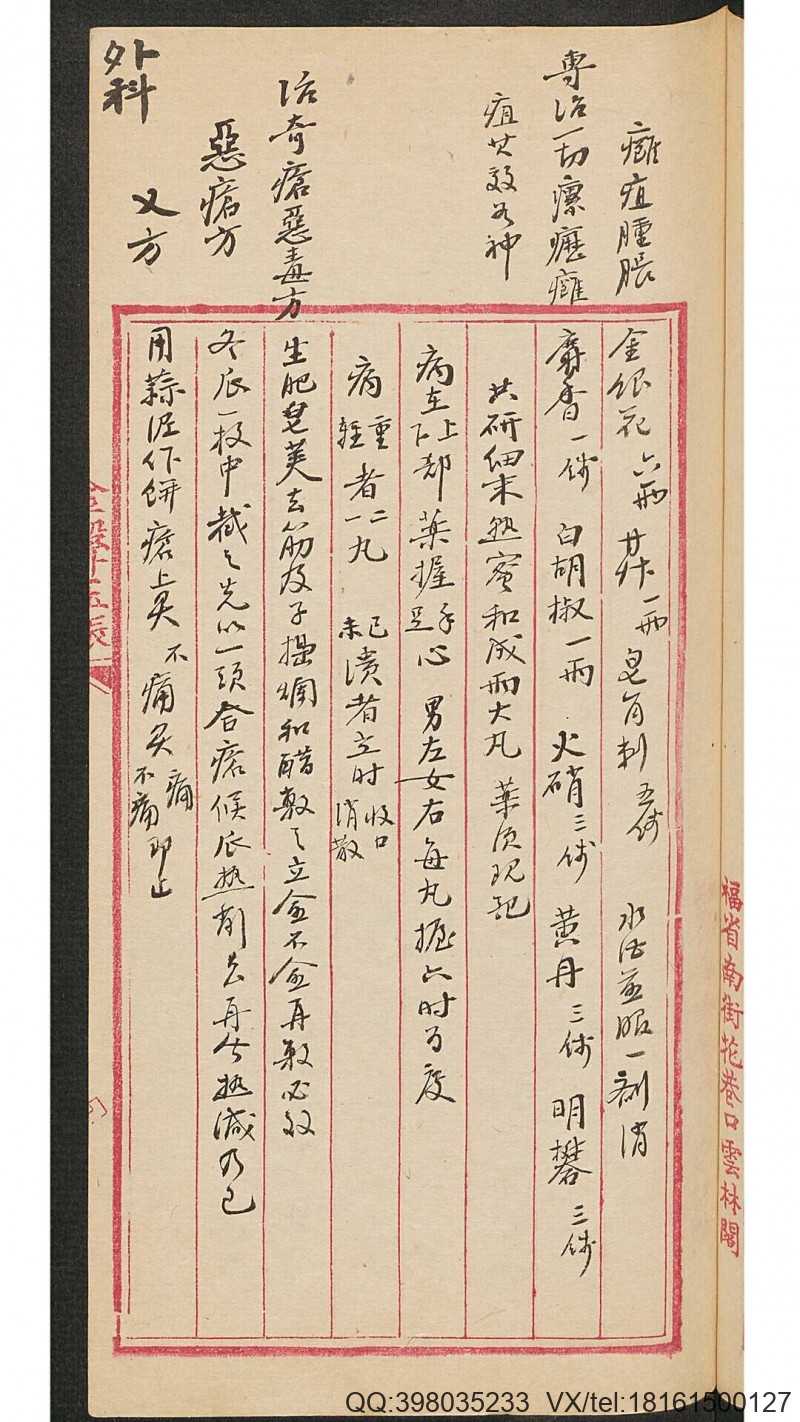 癰疽腫脹
金銀花 六兩 甘艸 一兩 皂角刺 五錢 水酒并服一劑消
專治一切瘰癧癰
疽其效若神
麝香 一錢 白胡椒 一兩 火硝 三錢 黃丹 三錢 明礬 三錢
共研細末熟蜜和成兩大丸 藥須現配
病在上下部藥握手足心 男左女右每丸握六時為度
病重輕者二一丸 已未潰者立時收口消散
治奇瘡惡毒方
生肥皂莢去筋及子搗爛和醋敷之立愈不愈再敷必效
惡瘡方
冬瓜一枚中截之先以一頭合瘡候瓜熱削去再合熱減乃已
又方
用蒜泥作餅瘡上灸不痛灸痛痛灸不痛即止
外科
福省南街花巷口雲林閣
QQ:398035233 VX/tel:18161500127